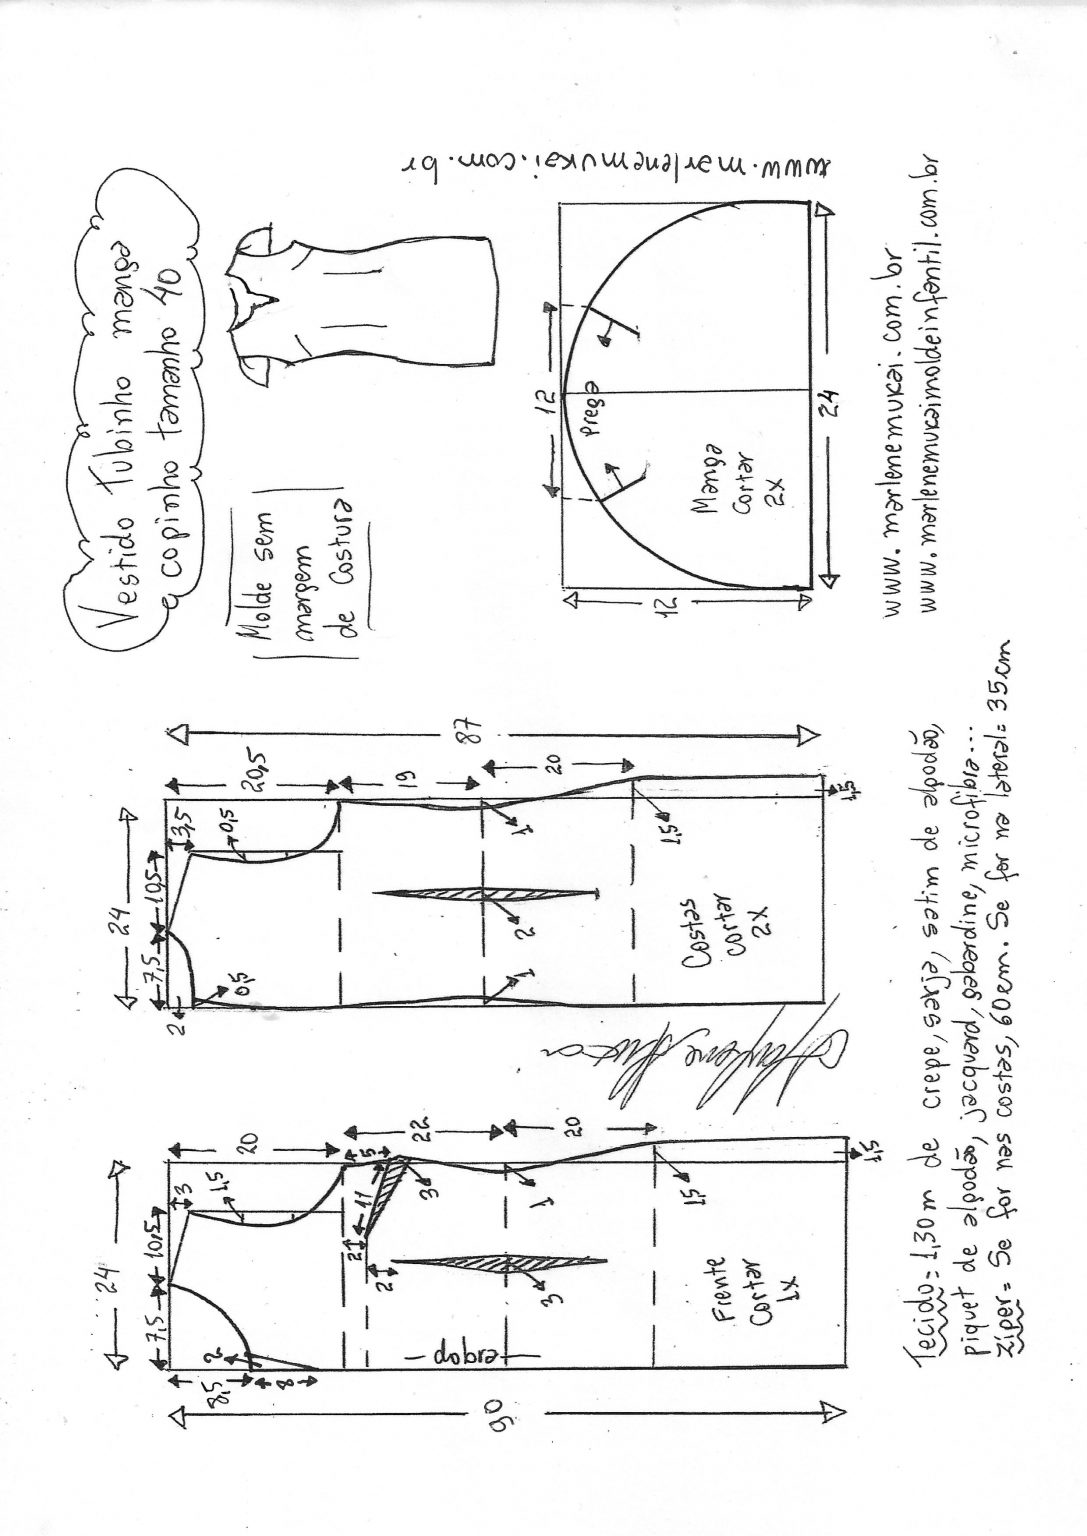 Vestido Tubinho manga
copinho tamanho 40
Molde sem
margem
de Costura
www.marlenemukai.com.br
24
7,5
10,5
3
20
1,5
8,5
2
8
22
5
11
3
2
2
1
20
3
1,5
1,5
dobra
Frente
Cortar
1x
90
24
7,5
10,5
3,5
20,5
0,5
2
0,5
19
1
2
1
20
1,5
1,5
Costas
Cortar
2x
87
12
Prega
Manga
Cortar
2x
12
24
www.marlenemukai.com.br
www.marlenemukaimoldeinfantil.com.br
Tecido= 1,30m de crepe, sarja, satim de algodão,
piquet de algodão, jacquard, gabardine, microfibra...
Ziper= Se for nas costas, 60cm. Se for na lateral= 35cm